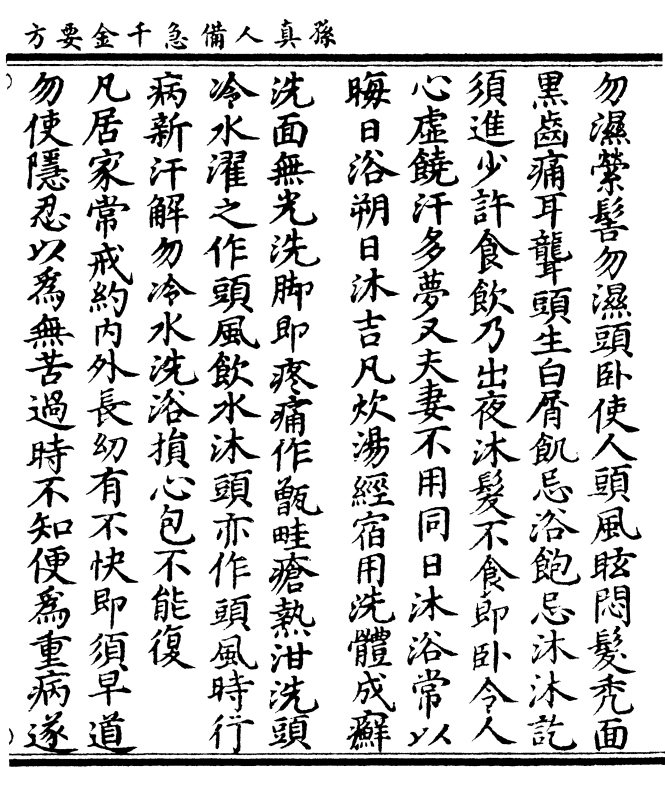 孫真人備急千金要方
勿濕縈髻勿濕頭卧使人頭風眩悶髮禿面
黒齒痛耳聾頭生白屑飢忌浴飽忌沐沐訖
須進少許食飲乃出夜沐髮不食即卧令人
心虛饒汗多夢又夫妻不用同日沐浴常以
晦日浴朔日沐吉凡炊湯經宿用洗體成癬
洗面無光洗脚即疼痛作甑畦瘡熱泔洗頭
冷水濯之作頭風飲水沐頭亦作頭風時行
病新汗解勿冷水洗浴損心包不能復
凡居家常戒約內外長幼有不快即須早道
勿使隱忍以為無苦過時不知便為重病遂